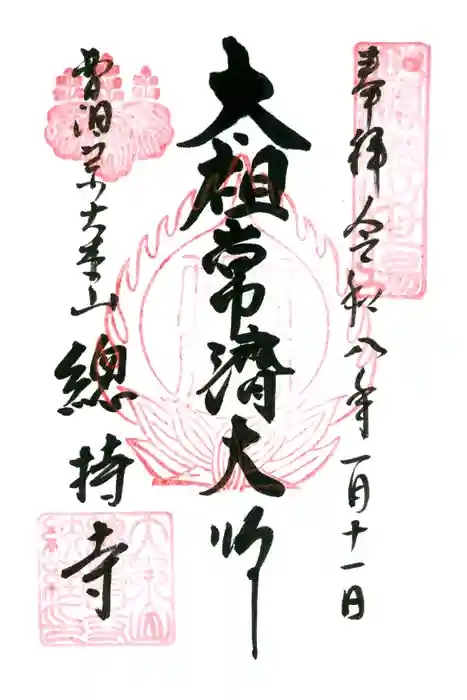 奉拝 令和八年一月十一日
太祖常済大師
曹洞宗大本山
總持寺